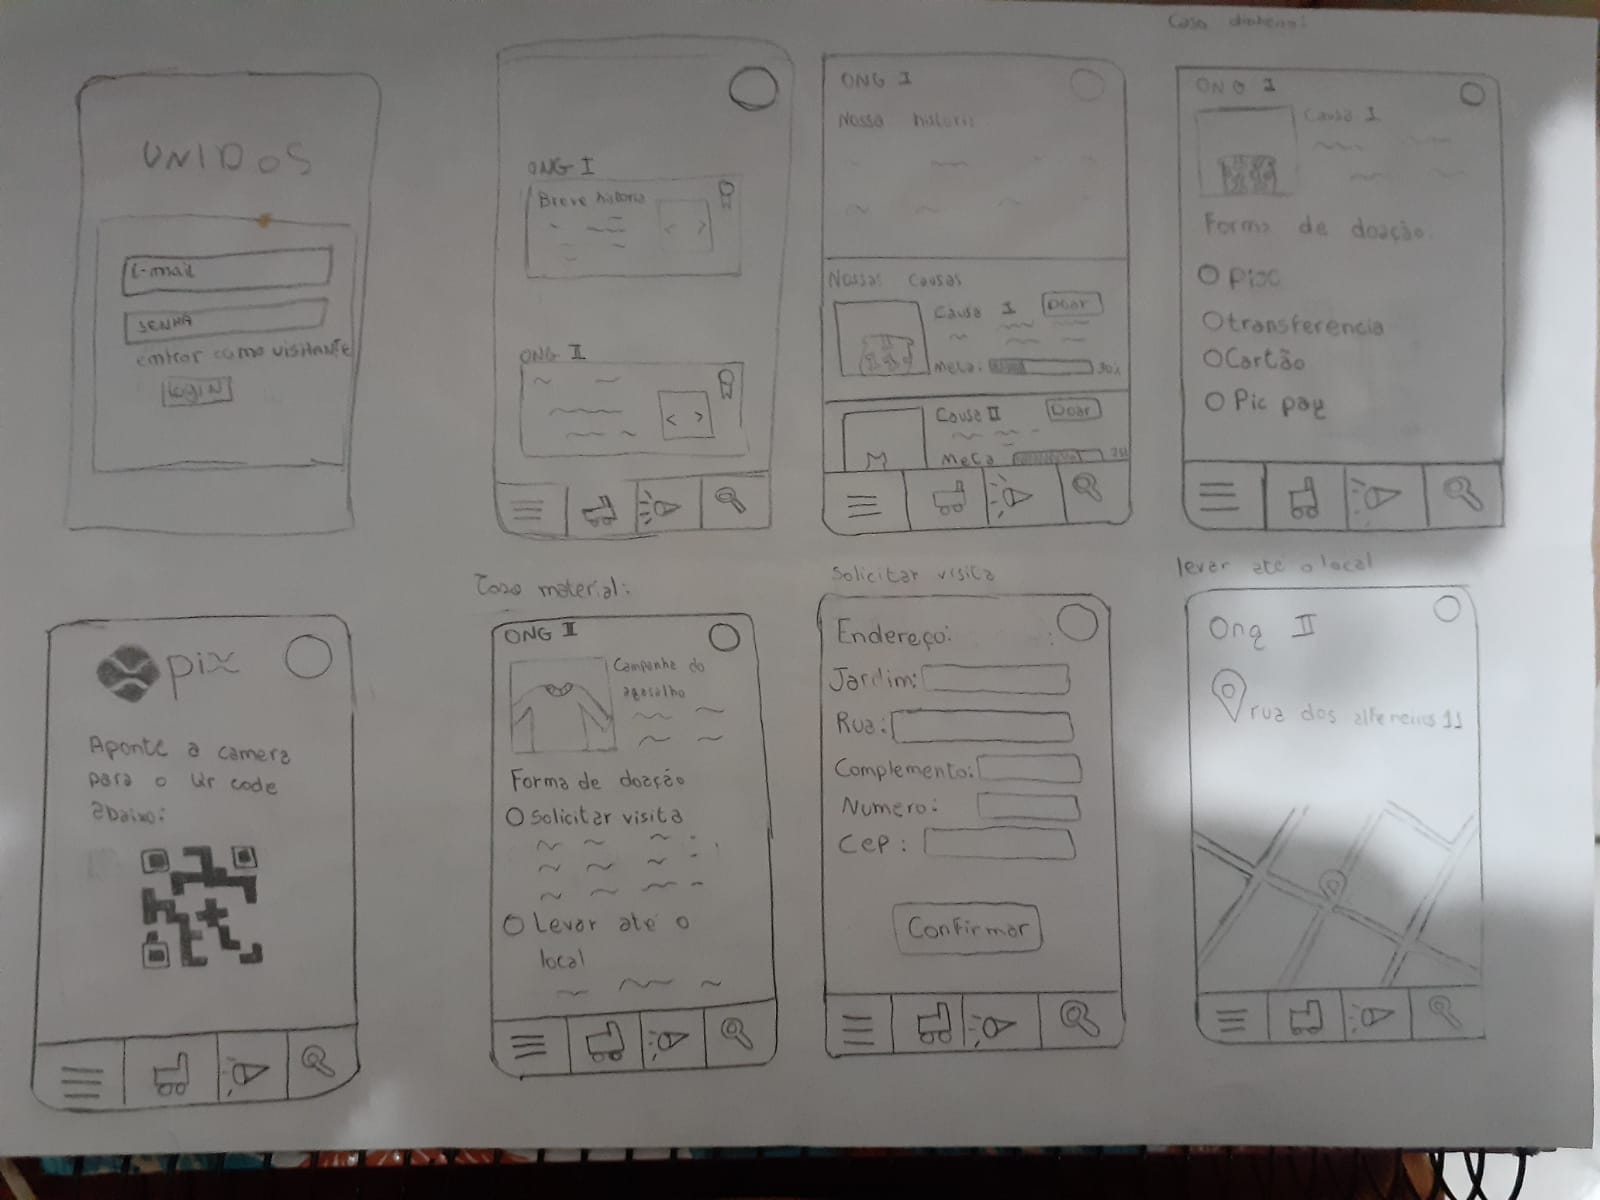 UNIDOS
E-mail
SENHA
entrar como visitante
LOGIN
ONG I
Breve historia
< >
ONG II
< >
ONG I
Nossa historia
Nossas causas
Causa I
Doar
Meta:
Causa II
Doar
Meta
Caso dinheiro:
ONG I
Causa I
Forma de doação:
pix
transferencia
Cartão
Pic pay
pix
Aponte a camera
para o Qr code
abaixo:
Caso material:
ONG II
Campanha do
agasalho
Forma de doação
Solicitar visita
Levar até o
local
Solicitar visita
Endereço:
Jardim:
Rua:
Complemento:
Numero:
Cep:
Confirmar
levar até o local
Ong II
rua dos alfeneiros 11